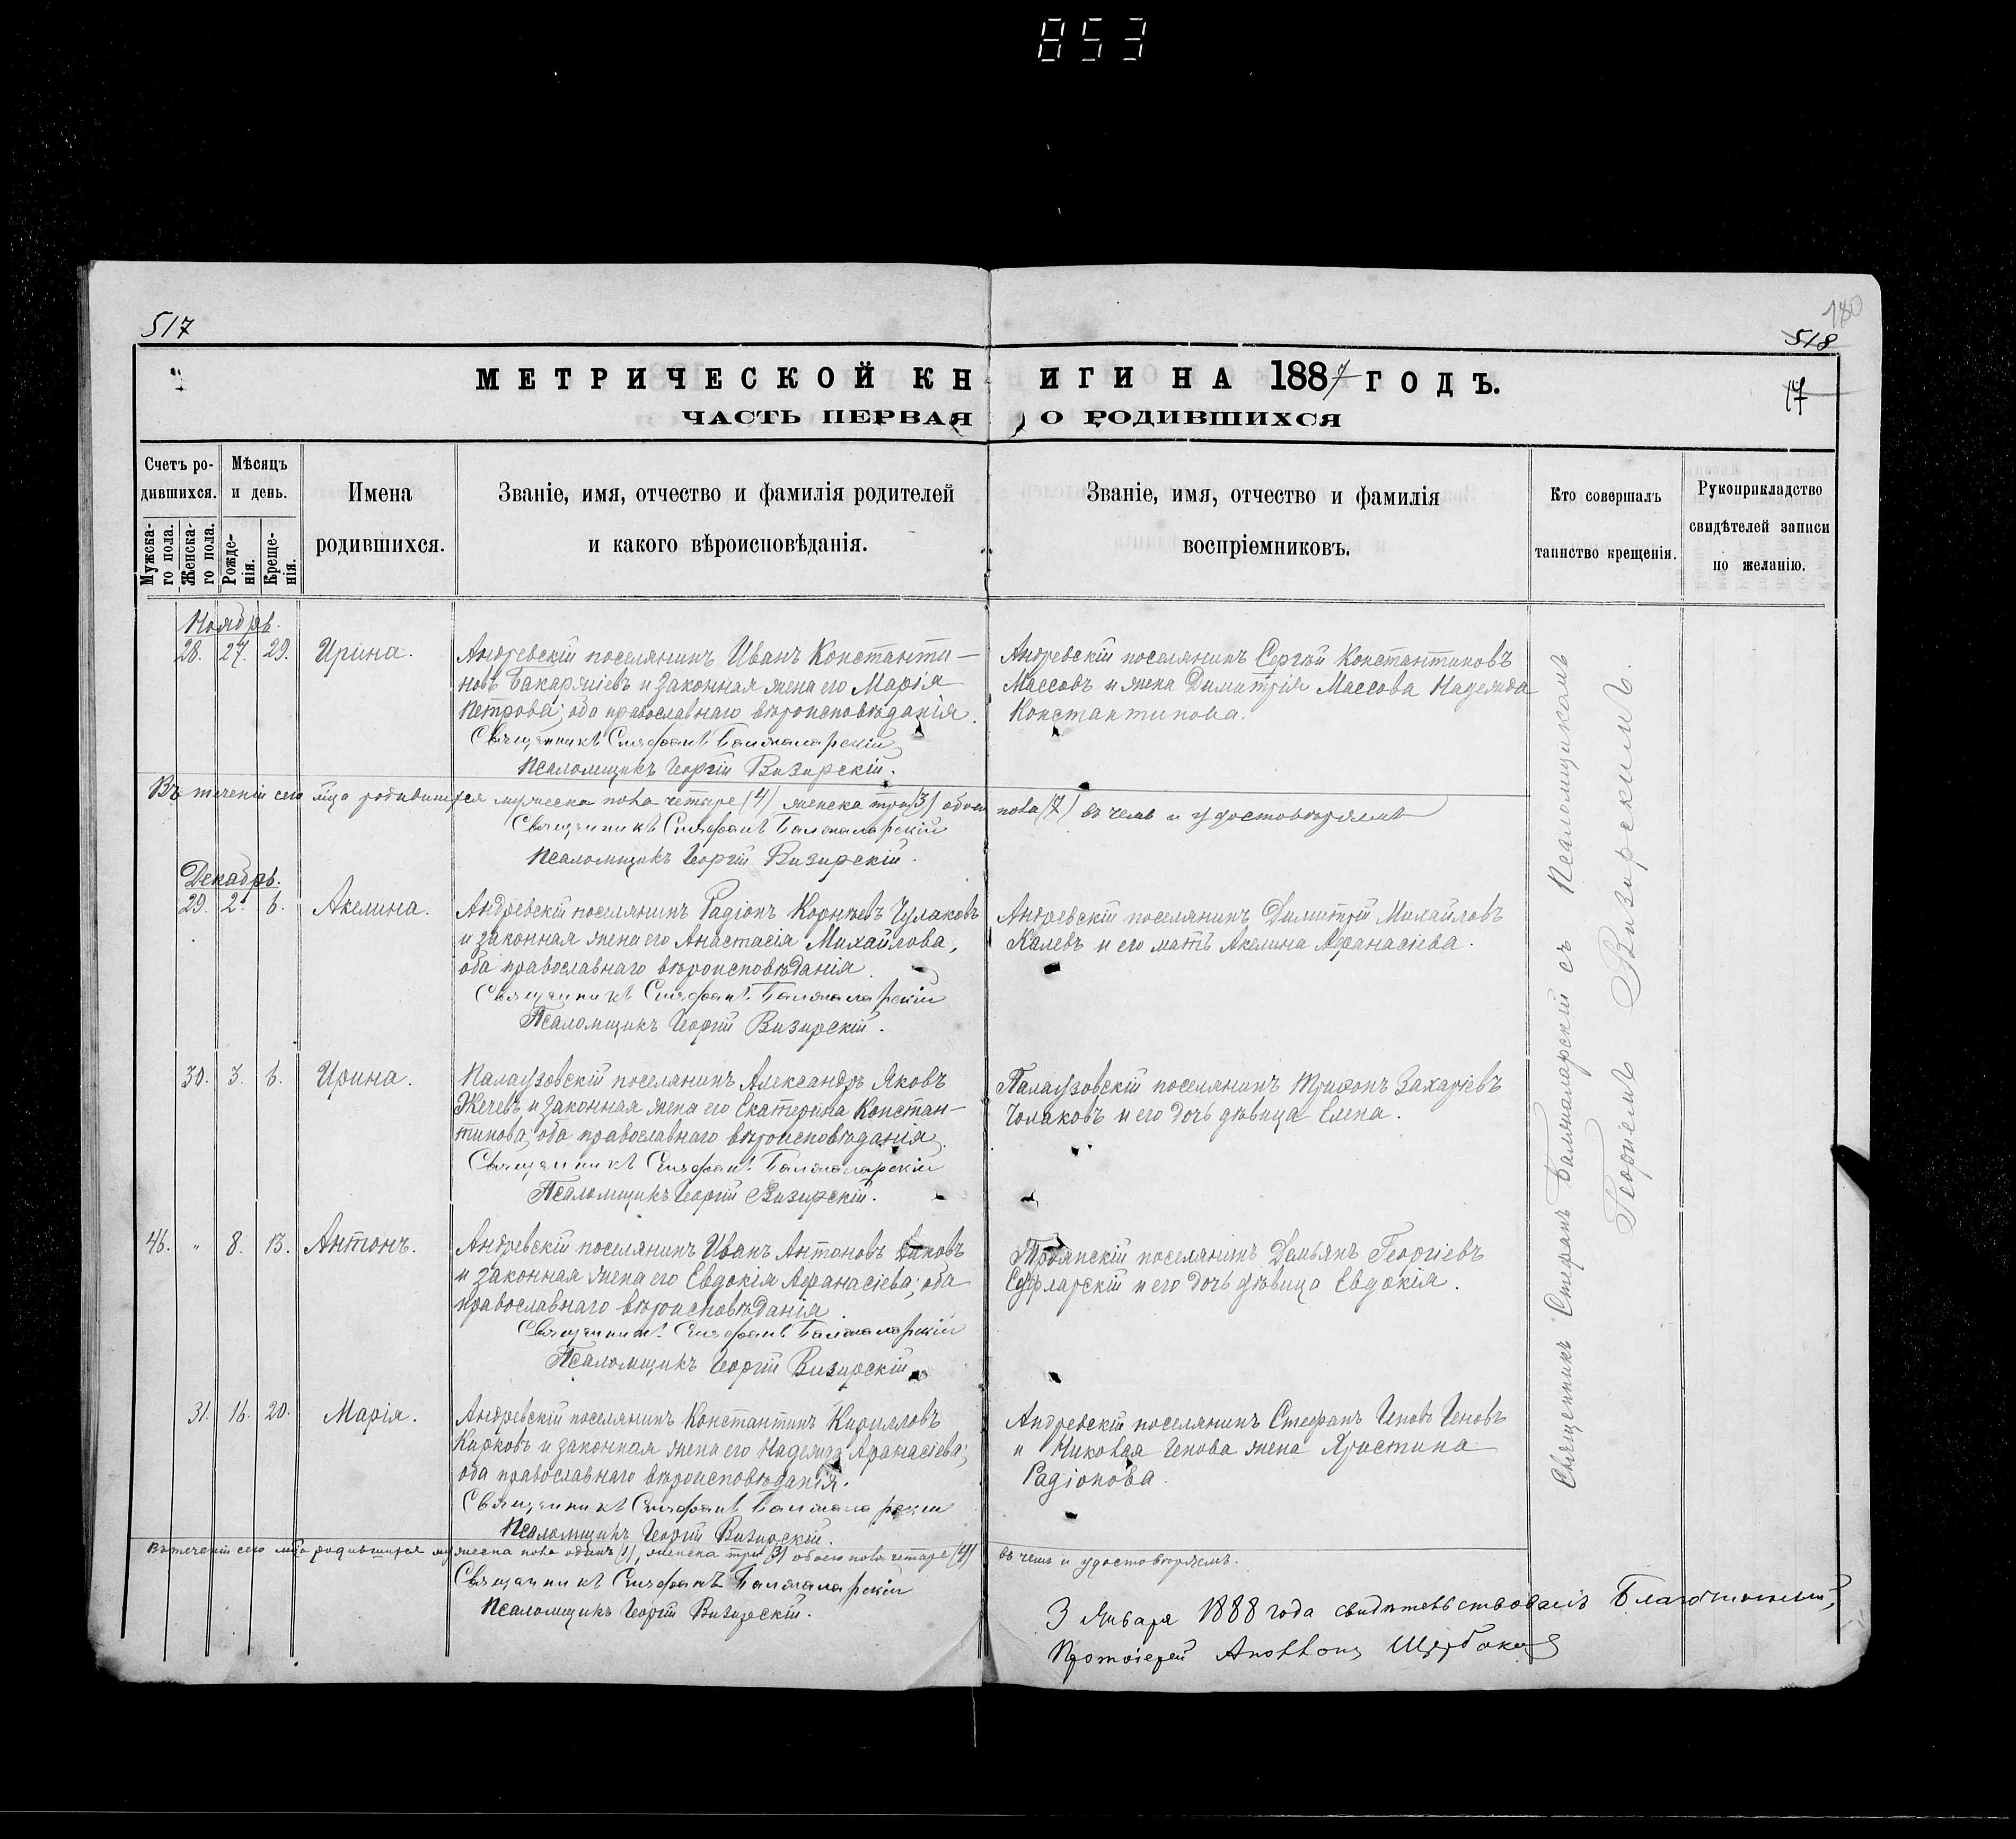 853
517
180
518
МЕТРИЧЕСКОЙ КНИГИ НА 1887 ГОДЪ.
17
ЧАСТЬ ПЕРВАЯ О РОДИВШИХСЯ
Счетъ родившихся.
Мужскаго пола.
Женскаго пола.
Мѣсяцъ и день.
Рожденія.
Крещенія.
Имена
родившихся.
Званіе, имя, отчество и фамилія родителей
и какого вѣроисповѣданія.
Званіе, имя, отчество и фамилія
воспріемниковъ.
Кто совершалъ
таинство крещенія.
Рукоприкладство
свидѣтелей записи
по желанію.
Ноябрь.
28. 27. 29. Ирина.
Андревскій поселянинъ Иванъ Константи-
новъ и законная жена его Марія
Петрова; оба православнаго вѣроисповѣданія.
Священникъ Стефанъ Балжаларскій
Псаломщикъ Георгій Визирскій.
Андревскій поселянинъ Сергѣй Константиновъ
Массовъ и жена Димитрія Массова Надежда
Константинова.
Въ теченіи сего мѣсяца родившихся мужеска пола четыре (4) женска три (3) обоего пола (7) въ чемъ и удостовѣряемъ
Священникъ Стефанъ Балжаларскій
Псаломщикъ Георгій Визирскій.
Декабрь.
29. 2. 6. Акелина.
Андревскій поселянинъ Радіонъ Корнѣевъ Чулаковъ
и законная жена его Анастасія Михайлова,
оба православнаго вѣроисповѣданія.
Священникъ Стефанъ Балжаларскій
Псаломщикъ Георгій Визирскій.
Андревскій поселянинъ Димитрій Михайловъ
Калевъ и его мать Акелина Афанасіева.
30. 3. 6. Ирина.
Палаузовскій поселянинъ Александръ Яковъ
Жечевъ и законная жена его Екатерина Констан-
тинова; оба православнаго вѣроисповѣданія.
Священникъ Стефанъ Балжаларскій
Псаломщикъ Георгій Визирскій.
Палаузовскій поселянинъ Трифонъ Захаріевъ
Чолаковъ и его дочь дѣвица Елена.
46. " 8. 13. Антонъ.
Андревскій поселянинъ Иванъ Антоновъ
и законная жена его Евдокія Афанасіева; оба
православнаго вѣроисповѣданія.
Священникъ Стефанъ Балжаларскій
Псаломщикъ Георгій Визирскій.
Троянскій поселянинъ Демьянъ Георгіевъ
и его дочь дѣвица Евдокія.
31. 16. 20. Марія.
Андревскій поселянинъ Константинъ Кирилловъ
Кирковъ и законная жена его Надежда Афанасіева;
оба православнаго вѣроисповѣданія.
Священникъ Стефанъ Балжаларскій
Псаломщикъ Георгій Визирскій.
Андревскій поселянинъ Стефанъ Геновъ Геновъ
и Николая Генова жена Христина
Радіонова.
Въ теченіи сего мѣсяца родившихся мужеска пола одинъ (1), женска три (3) обоего пола четыре (4) въ чемъ и удостовѣряемъ.
Священникъ Стефанъ Балжаларскій
Псаломщикъ Георгій Визирскій.
Священникъ Стефанъ Балжаларскій съ Псаломщикомъ
Георгіемъ Визирскимъ.
3 Января 1888 года свидѣтельствовалъ Благочинный,
Протоіерей Аполлонъ Щербаковъ